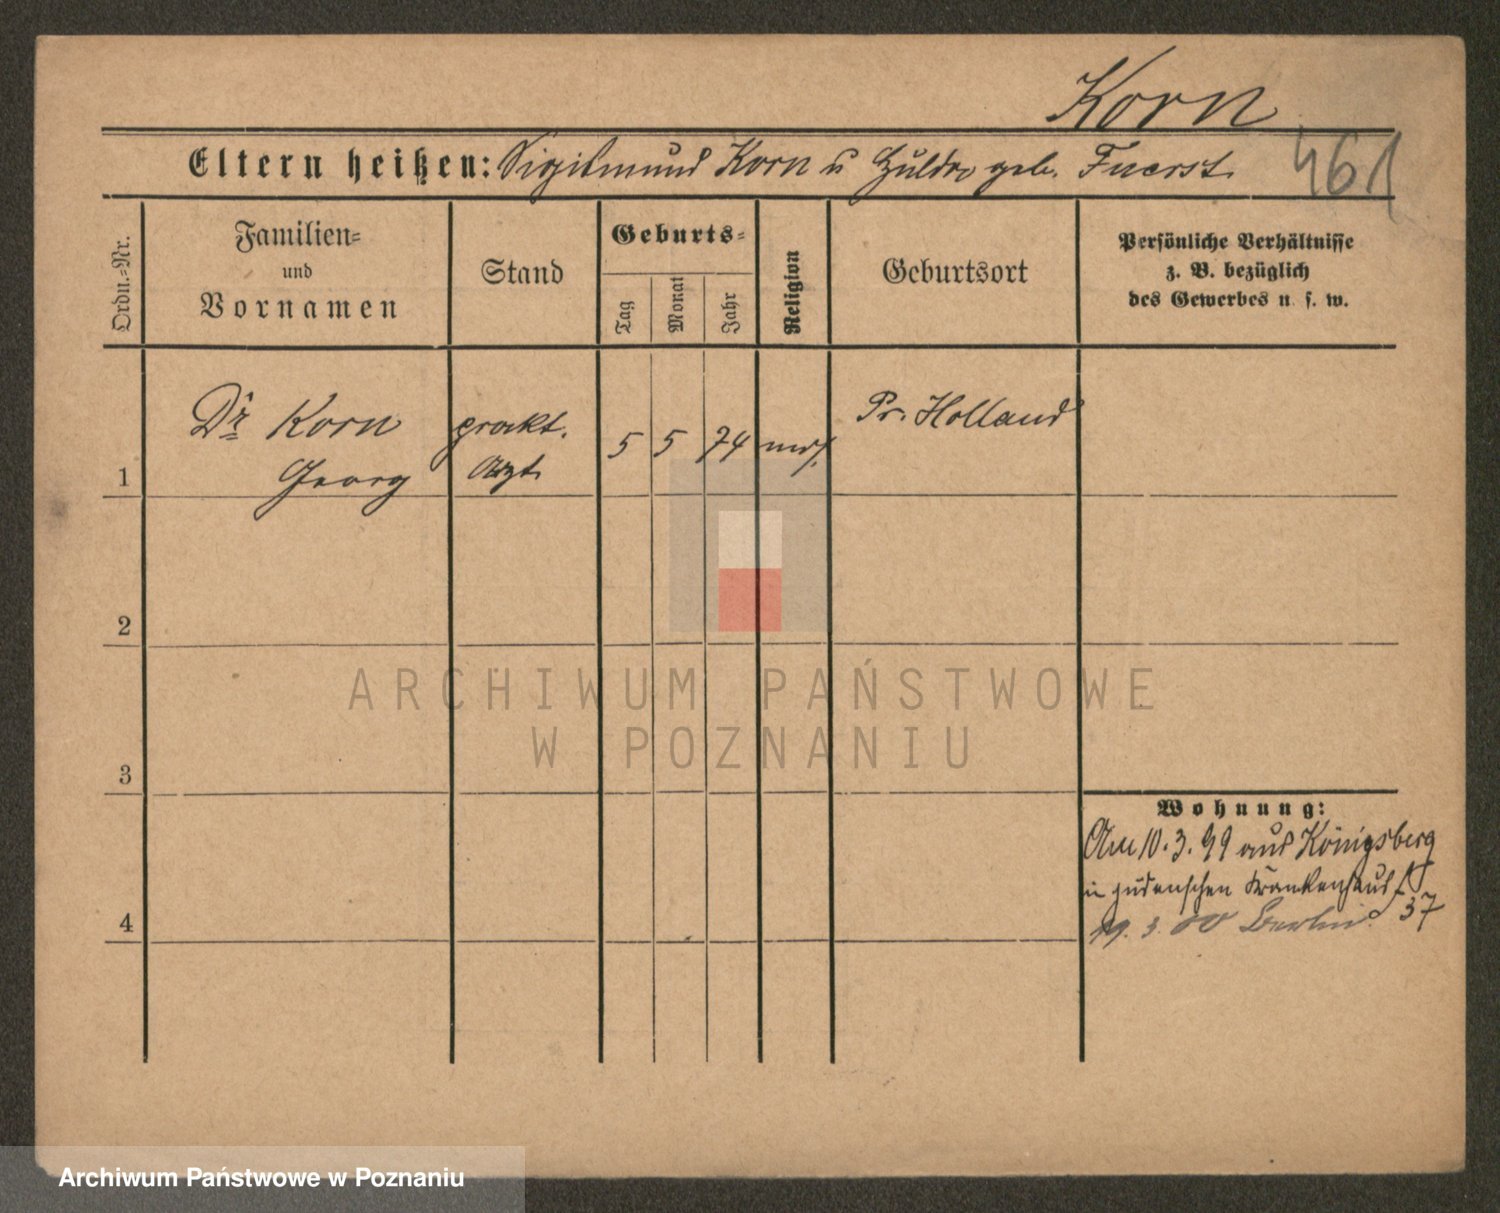 Korn
461
Eltern heißen: Sigismund Korn u Hulda geb. Fuerst.
Ordn.-Nr.
Familien-
und
Vornamen
Stand
Geburts-
Tag
Monat
Jahr
Religion
Geburtsort
Persönliche Verhältnisse
z. B. bezüglich
des Gewerbes u. s. w.
1
Dr Korn
Georg
prakt.
Arzt
5
5
74
mos.
Pr. Holland
2
3
4
Wohnung:
Am 10.3.99 aus Königsberg
in jüdenschen Krankenhaus
37
19. 3. 00 Berlin.
ARCHIWUM PAŃSTWOWE
W POZNANIU
Archiwum Państwowe w Poznaniu